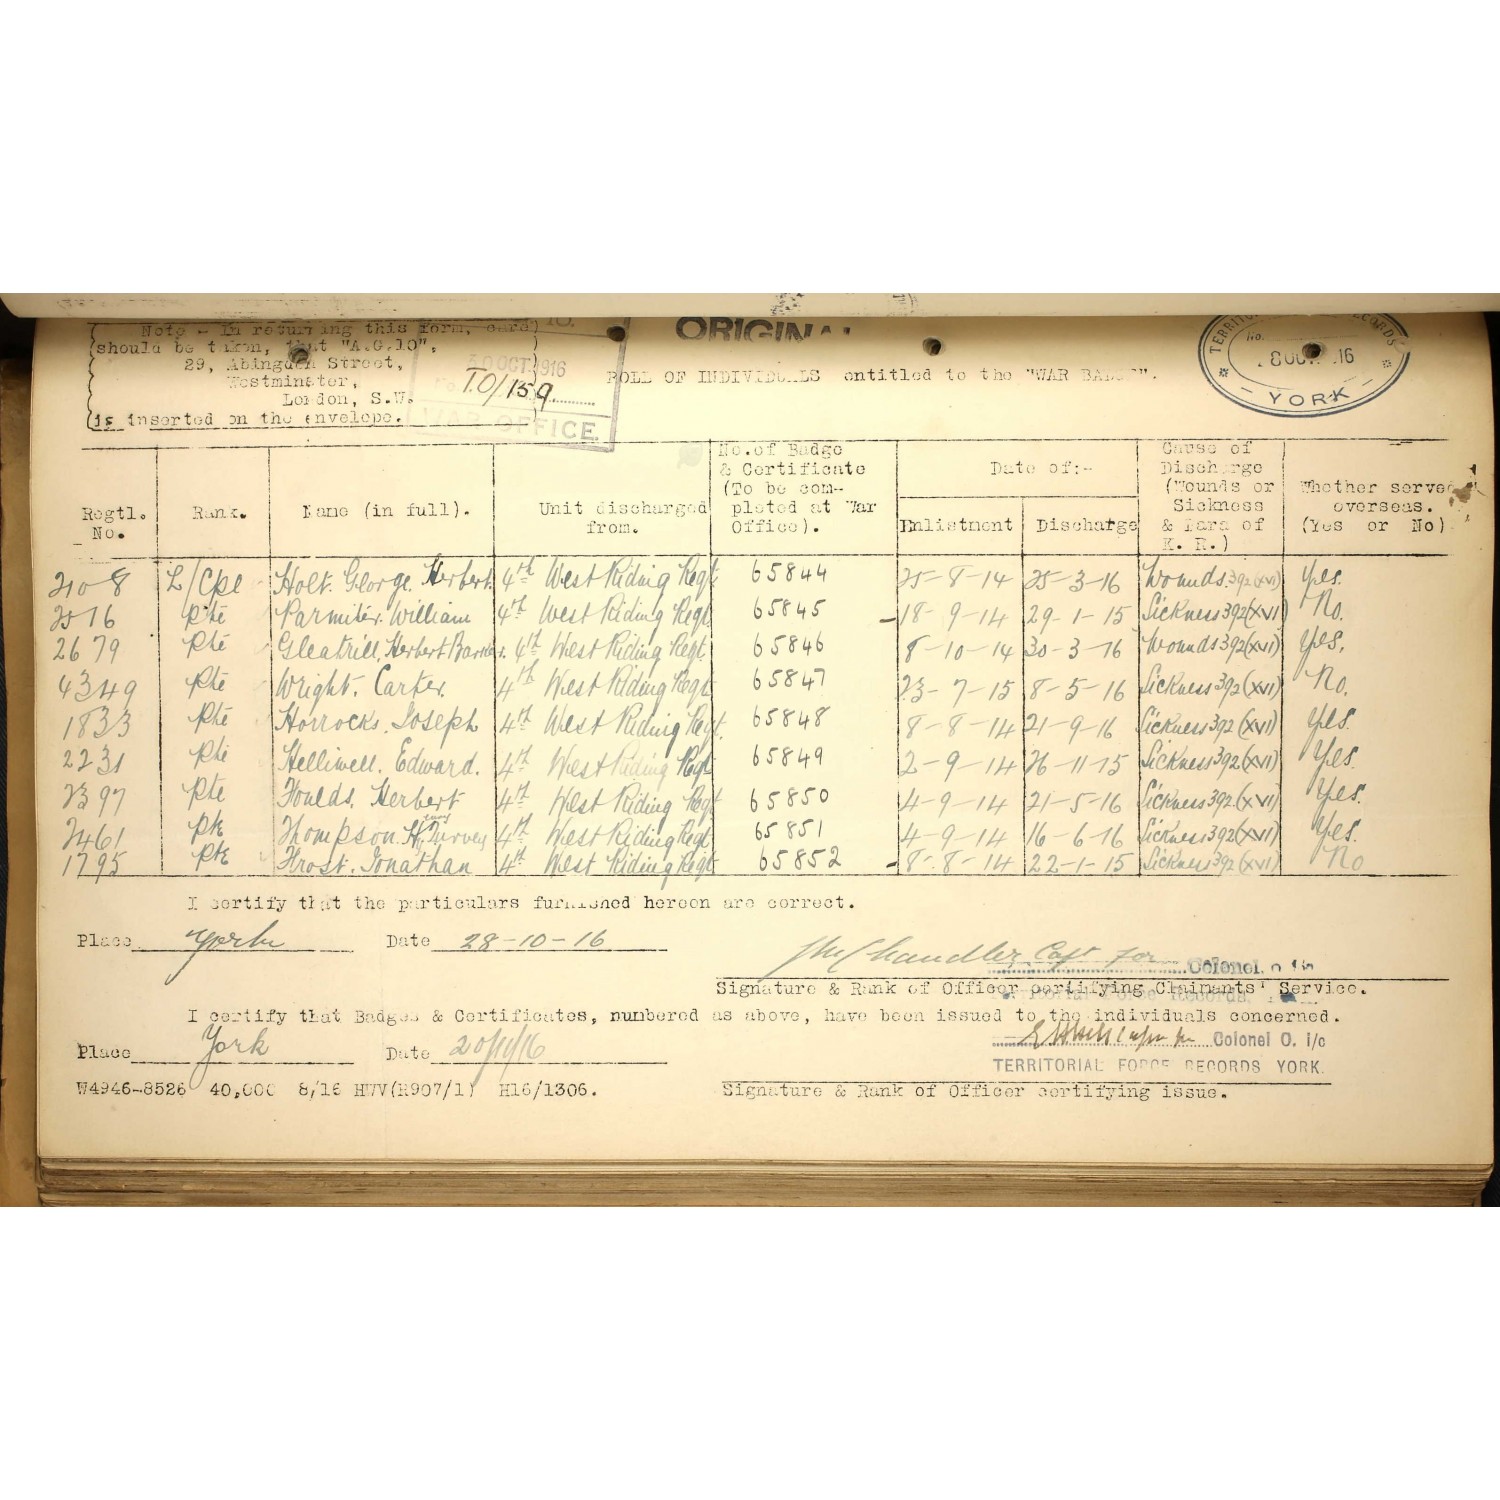 Note - In returning this form, care
should be taken, that "A.G.10",
29, Abingdon Street,
Westminster,
London, S.W.
is inserted on the envelope.
30 OCT. 1916
T.O/159
WAR OFFICE
ORIGINAL
TERRITORIAL RECORDS
No.
YORK
ROLL OF INDIVIDUALS entitled to the "WAR BADGE".
Regtl. No. Rank. Name (in full). Unit discharged from. No. of Badge & Certificate (To be com- pleted at War Office). Date of:- Enlistment Discharge Cause of Discharge (Wounds or Sickness & Para of K. R.) Whether served overseas. (Yes or No)
L/Cpl Holt. George. Herbert. 4th West Riding Regt 65844 25-8-14 25-3-16 Wounds. 392(XVI) Yes.
2516 Pte Parmiter. William 4th West Riding Regt 65845 18-9-14 29-1-15 Sickness 392(XVI) No.
2679 Pte Herbert 4th West Riding Regt. 65846 8-10-14 30-3-16 Wounds 392(XVI) Yes.
4349 Pte Wright. Carter. 4th West Riding Regt 65847 23-7-15 8-5-16 Sickness 392(XVI) No.
1833 Pte Horrocks. Joseph 4th West Riding Regt. 65848 8-8-14 21-9-16 Sickness 392(XVI) Yes.
2231 Pte Helliwell. Edward. 4th West Riding Regt 65849 2-9-14 26-11-15 Sickness 392(XVI) Yes.
2397 Pte Foulds. Herbert 4th West Riding Regt 65850 4-9-14 21-5-16 Sickness 392(XVI) Yes.
2461 Pte Thompson. 4th West Riding Regt 65851 4-9-14 16-6-16 Sickness 392(XVI) Yes.
1795 Pte Frost. Jonathan 4th West Riding Regt 65852 8-8-14 22-1-15 Sickness 392(XVI) No
I certify that the particulars furnished hereon are correct.
Place York Date 28-10-16
Chandler Capt for Colonel
Territorial Force Records.
Signature & Rank of Officer certifying Claimants' Service.
I certify that Badges & Certificates, numbered as above, have been issued to the individuals concerned.
Place York Date 20/11/16
Colonel O. i/c
TERRITORIAL FORCE RECORDS YORK.
W4946-8526 40,000 8/16 HWV(R907/1) H16/1306.
Signature & Rank of Officer certifying issue.